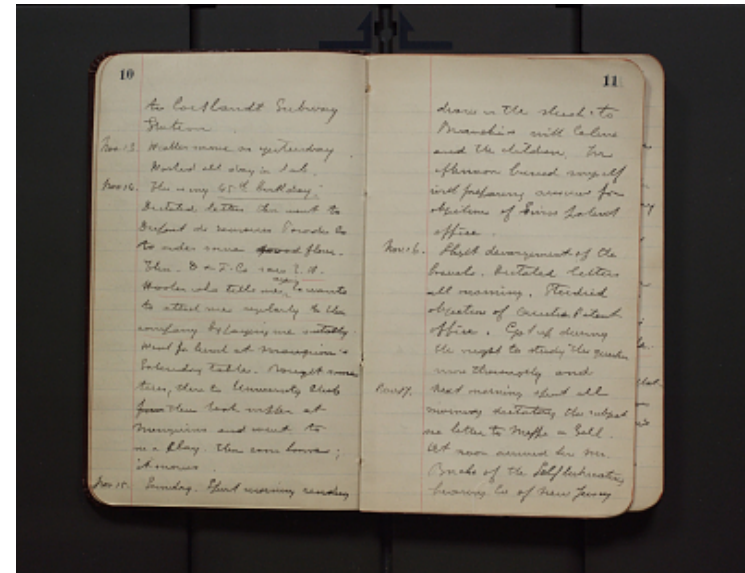 10
to Cortlandt Subway
Station.
Nov. 13. Weather same as yesterday.
Worked all day in lab.
Nov 14. This is my 65th birthday.
Dictated letters then went to
Dupont de Nemours Powder Co
to order some flour.
Then. D & F. Co saw
Hooker who tells me again Co wants
to attach me regularly to the
company & paying me suitably.
Went for lunch at
Saturday table. Bought some
ties, then to University Club
from then took supper at
and went to
see a play. Then came home;
it snows.
Nov 15. Sunday. Spent morning reading
11
drove in the sleigh to
with Celine
and the children. In
afternoon busied myself
with preparing answer for
objections of Swiss patent
office.
Nov 16. Slight derangement of the
bowels. Dictated letters
all morning. Studied
objection of Patent
office. Got up during
the night to study the question
more thoroughly and
Nov 17. next morning spent all
morning dictating the subject
letter to
At noon arrived here Mr.
of the Self lubricating
bearing Co of New Jersey